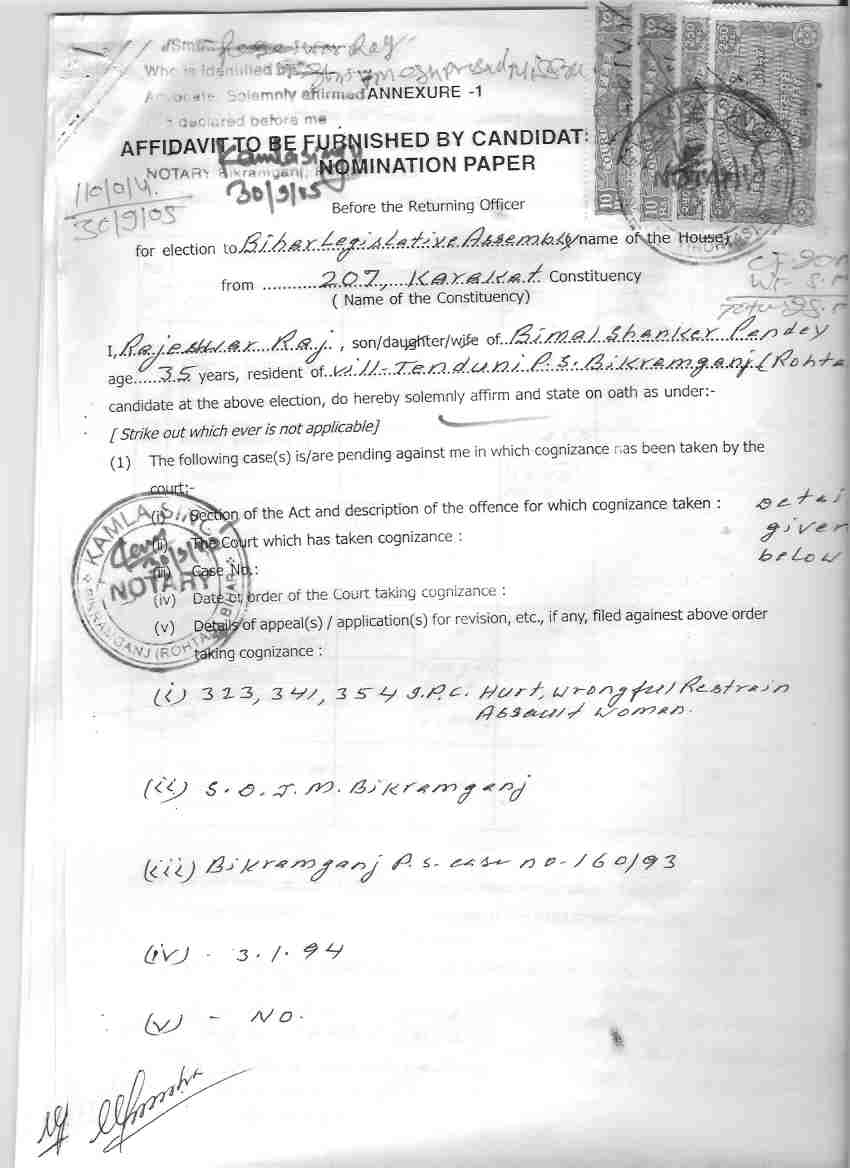 Who is Identified by
Advocate. Solemnly affirmed ANNEXURE -1
declared before me
AFFIDAVIT TO BE FURNISHED BY CANDIDAT
NOTARY Bikramganj, NOMINATION PAPER
30/9/05
30/9/05
Before the Returning Officer
for election to Bihar Legislative Assembly (name of the House)
from 207, Karakat Constituency
( Name of the Constituency)
I, Rajeshwar Raj , son/daughter/wife of Bimal Shanker Pandey
age 35 years, resident of vill-Tenduni P.S. Bikramganj (Rohta
candidate at the above election, do hereby solemnly affirm and state on oath as under:-
[ Strike out which ever is not applicable]
(1) The following case(s) is/are pending against me in which cognizance has been taken by the
court:-
(i) Section of the Act and description of the offence for which cognizance taken : Detai
given
below
(ii) The Court which has taken cognizance :
(iii) Case No.:
(iv) Date of order of the Court taking cognizance :
(v) Details of appeal(s) / application(s) for revision, etc., if any, filed againest above order
taking cognizance :
KAMLA SINGH
NOTARY
BIKRAMGANJ (ROHTAS) BIHAR
NOTARY
(i) 323, 341, 354 I.P.C. Hurt, wrongful Restrain
Assault woman.
(ii) S.D.J.M. Bikramganj
(iii) Bikramganj P.S. case no-160/93
(iv) - 3.1.94
(v) - NO.